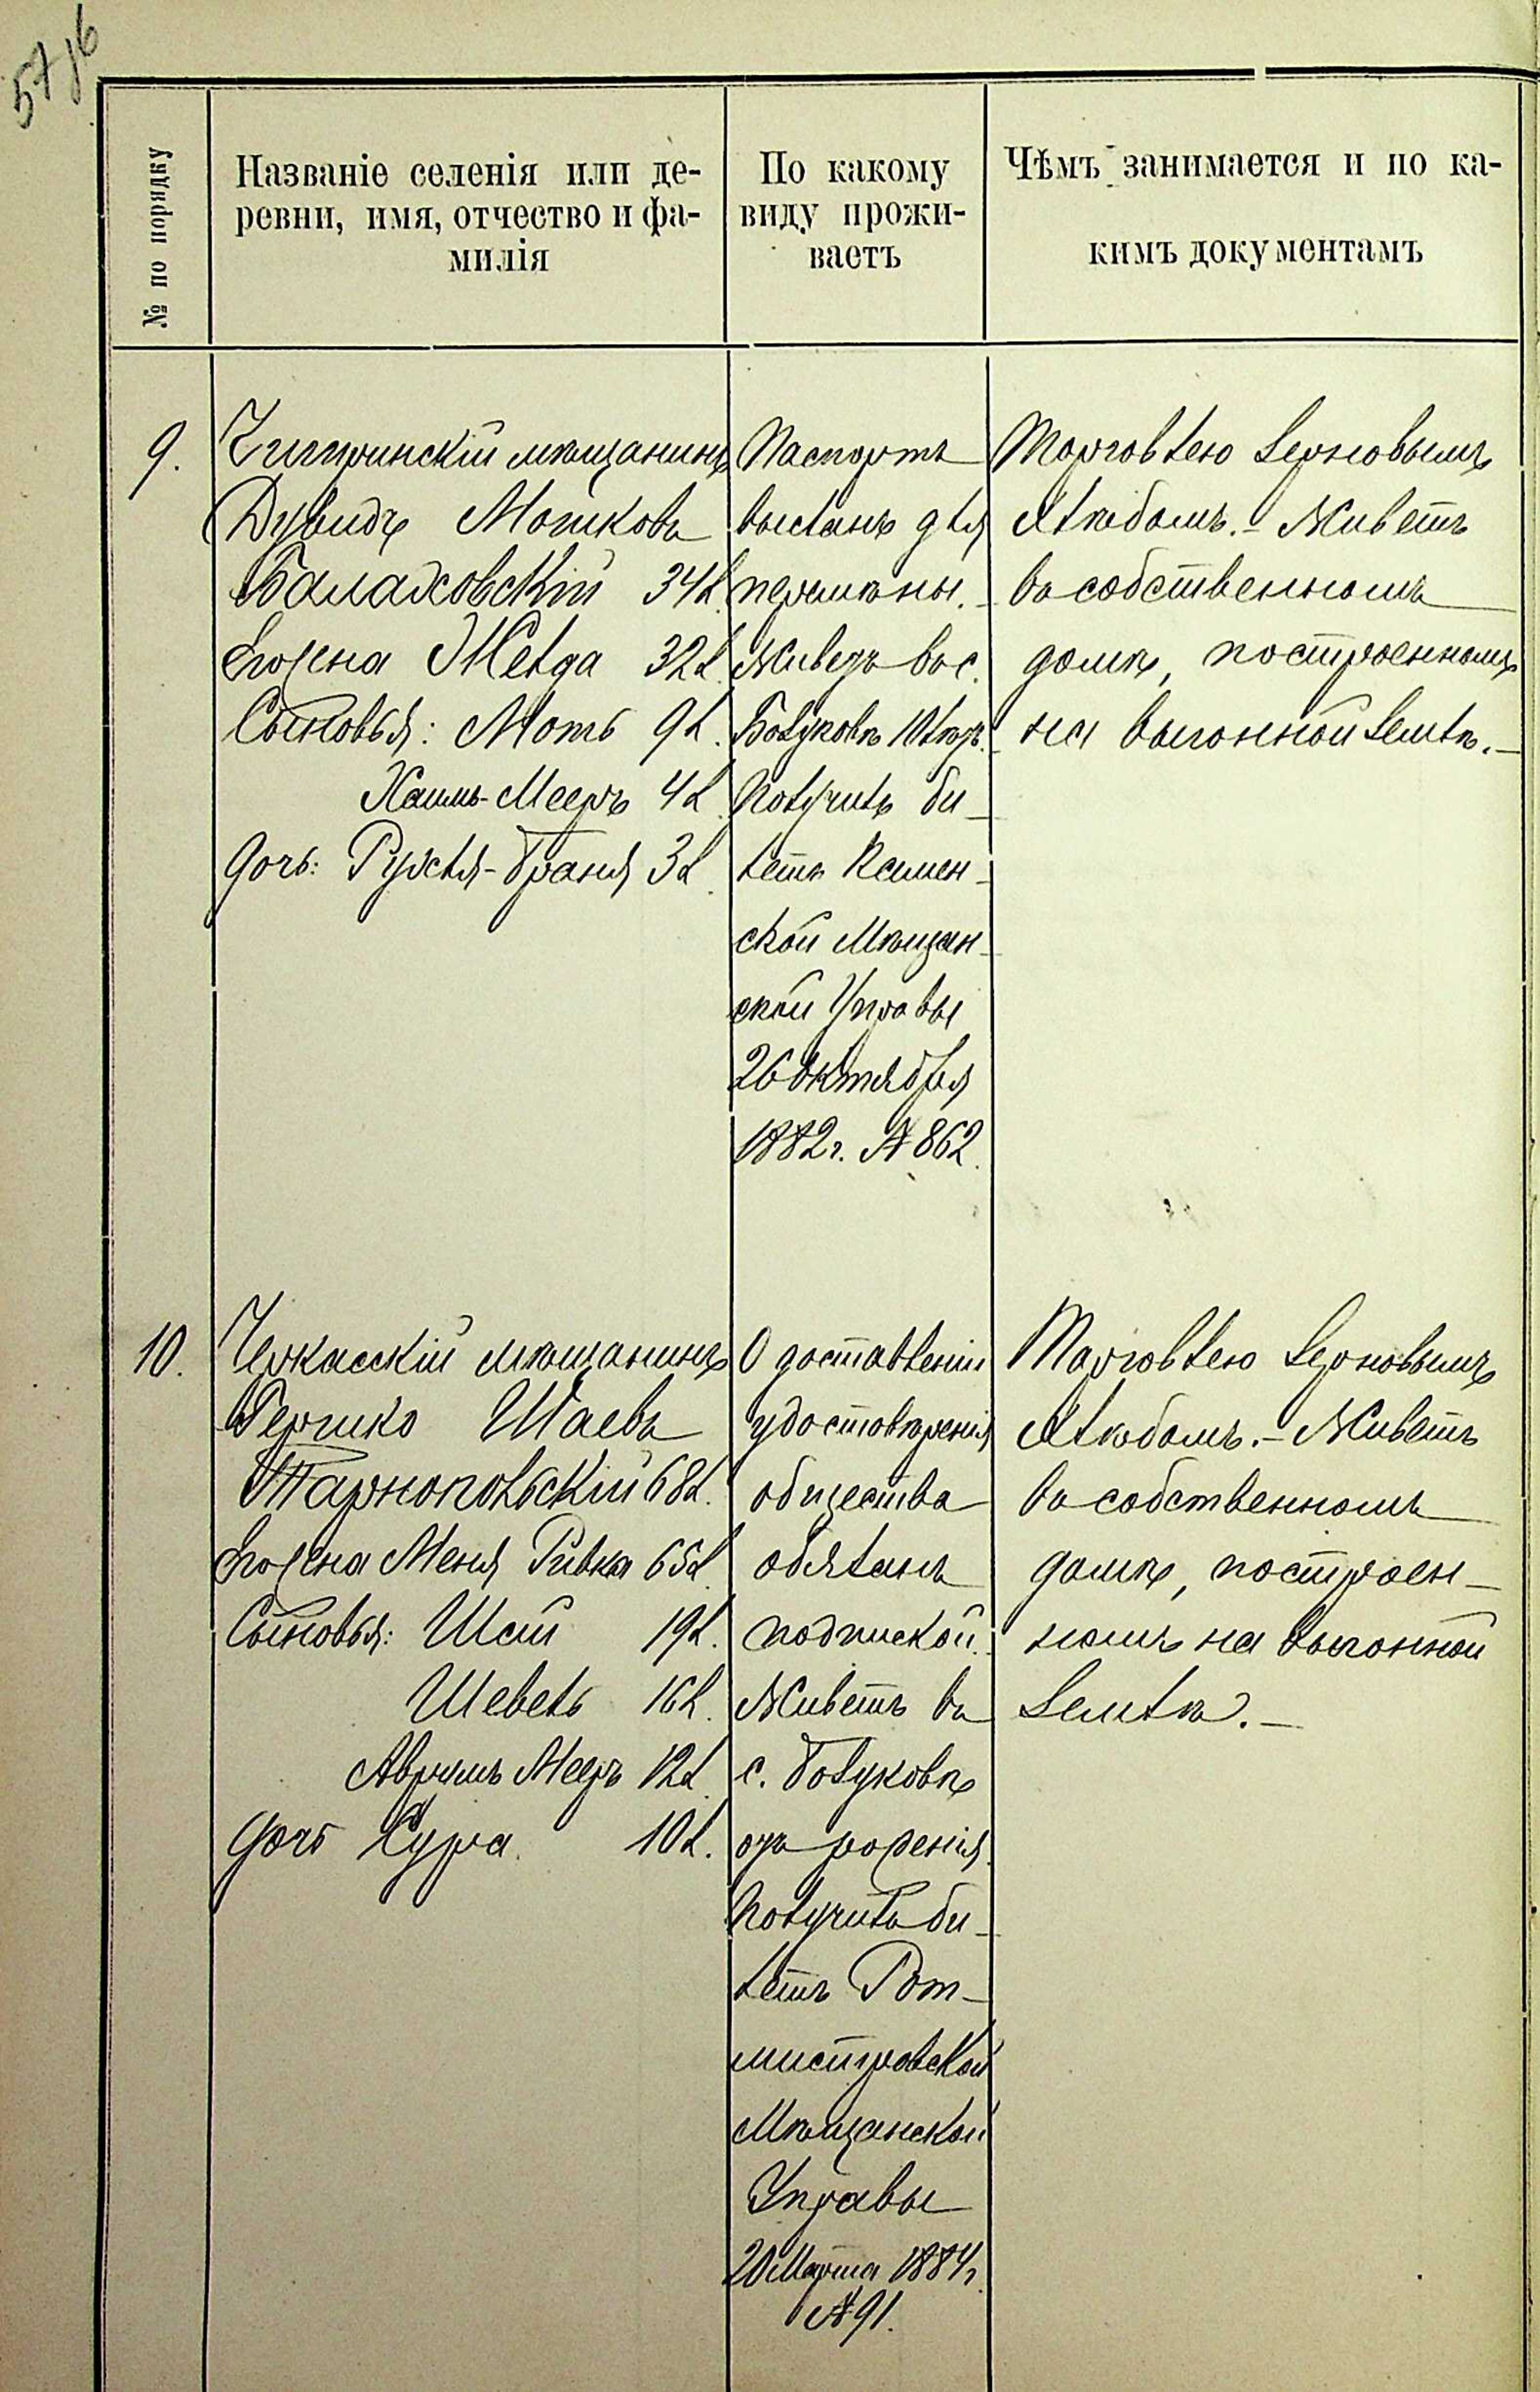 57 об
№ по порядку
Названіе селенія или де-
ревни, имя, отчество и фа-
милія
По какому
виду прожи-
ваетъ
Чѣмъ занимается и по ка-
кимъ документамъ
9.
Чигиринскій мѣщанинъ
Дувидъ Мошковъ
Балаховскій 34 л.
жена Желда 32 л.
Сыновья: Моть 9 л.
Хаимъ-Мееръ 4 л.
дочь: Рухля-Браня 3 л.
Паспортъ
высланъ для
перемѣны.
Живетъ въ с.
Болуковѣ 10 лѣтъ.
Получилъ би-
летъ Камен-
ской Мѣщан-
ской Управы
26 октября
1882 г. № 862.
Торговлею зерновымъ
хлѣбомъ. - Живетъ
въ собственномъ
домѣ, построенномъ
на выгонной землѣ. -
10.
Черкасскій мѣщанинъ
Гершко Шаевъ
Тарнопольскій 68 л.
жена Меня Ривка 65 л.
Сыновья: Шай 19 л.
Шевель 16 л.
Аврумъ Мееръ 12 л.
дочь Сура 10 л.
О доставленіи
удостовѣренія
общества
обязанъ
подпиской.
Живетъ въ
с. Болуковѣ
отъ рожденія.
Получилъ би-
летъ Рот-
мистровской
Мѣщанской
Управы
20 Марта 1884 г.
№ 91.
Торговлею зерновымъ
хлѣбомъ. - Живетъ
въ собственномъ
домѣ, построен-
номъ на выгонной
землѣ. -